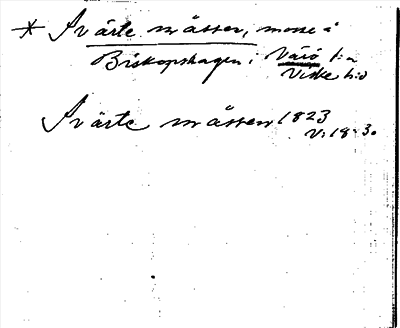 * Svarte måssen, mosse i
Biskopshagen i Värö s:n
Viske h:d
Svarte måssen 1823
V: 18: 30